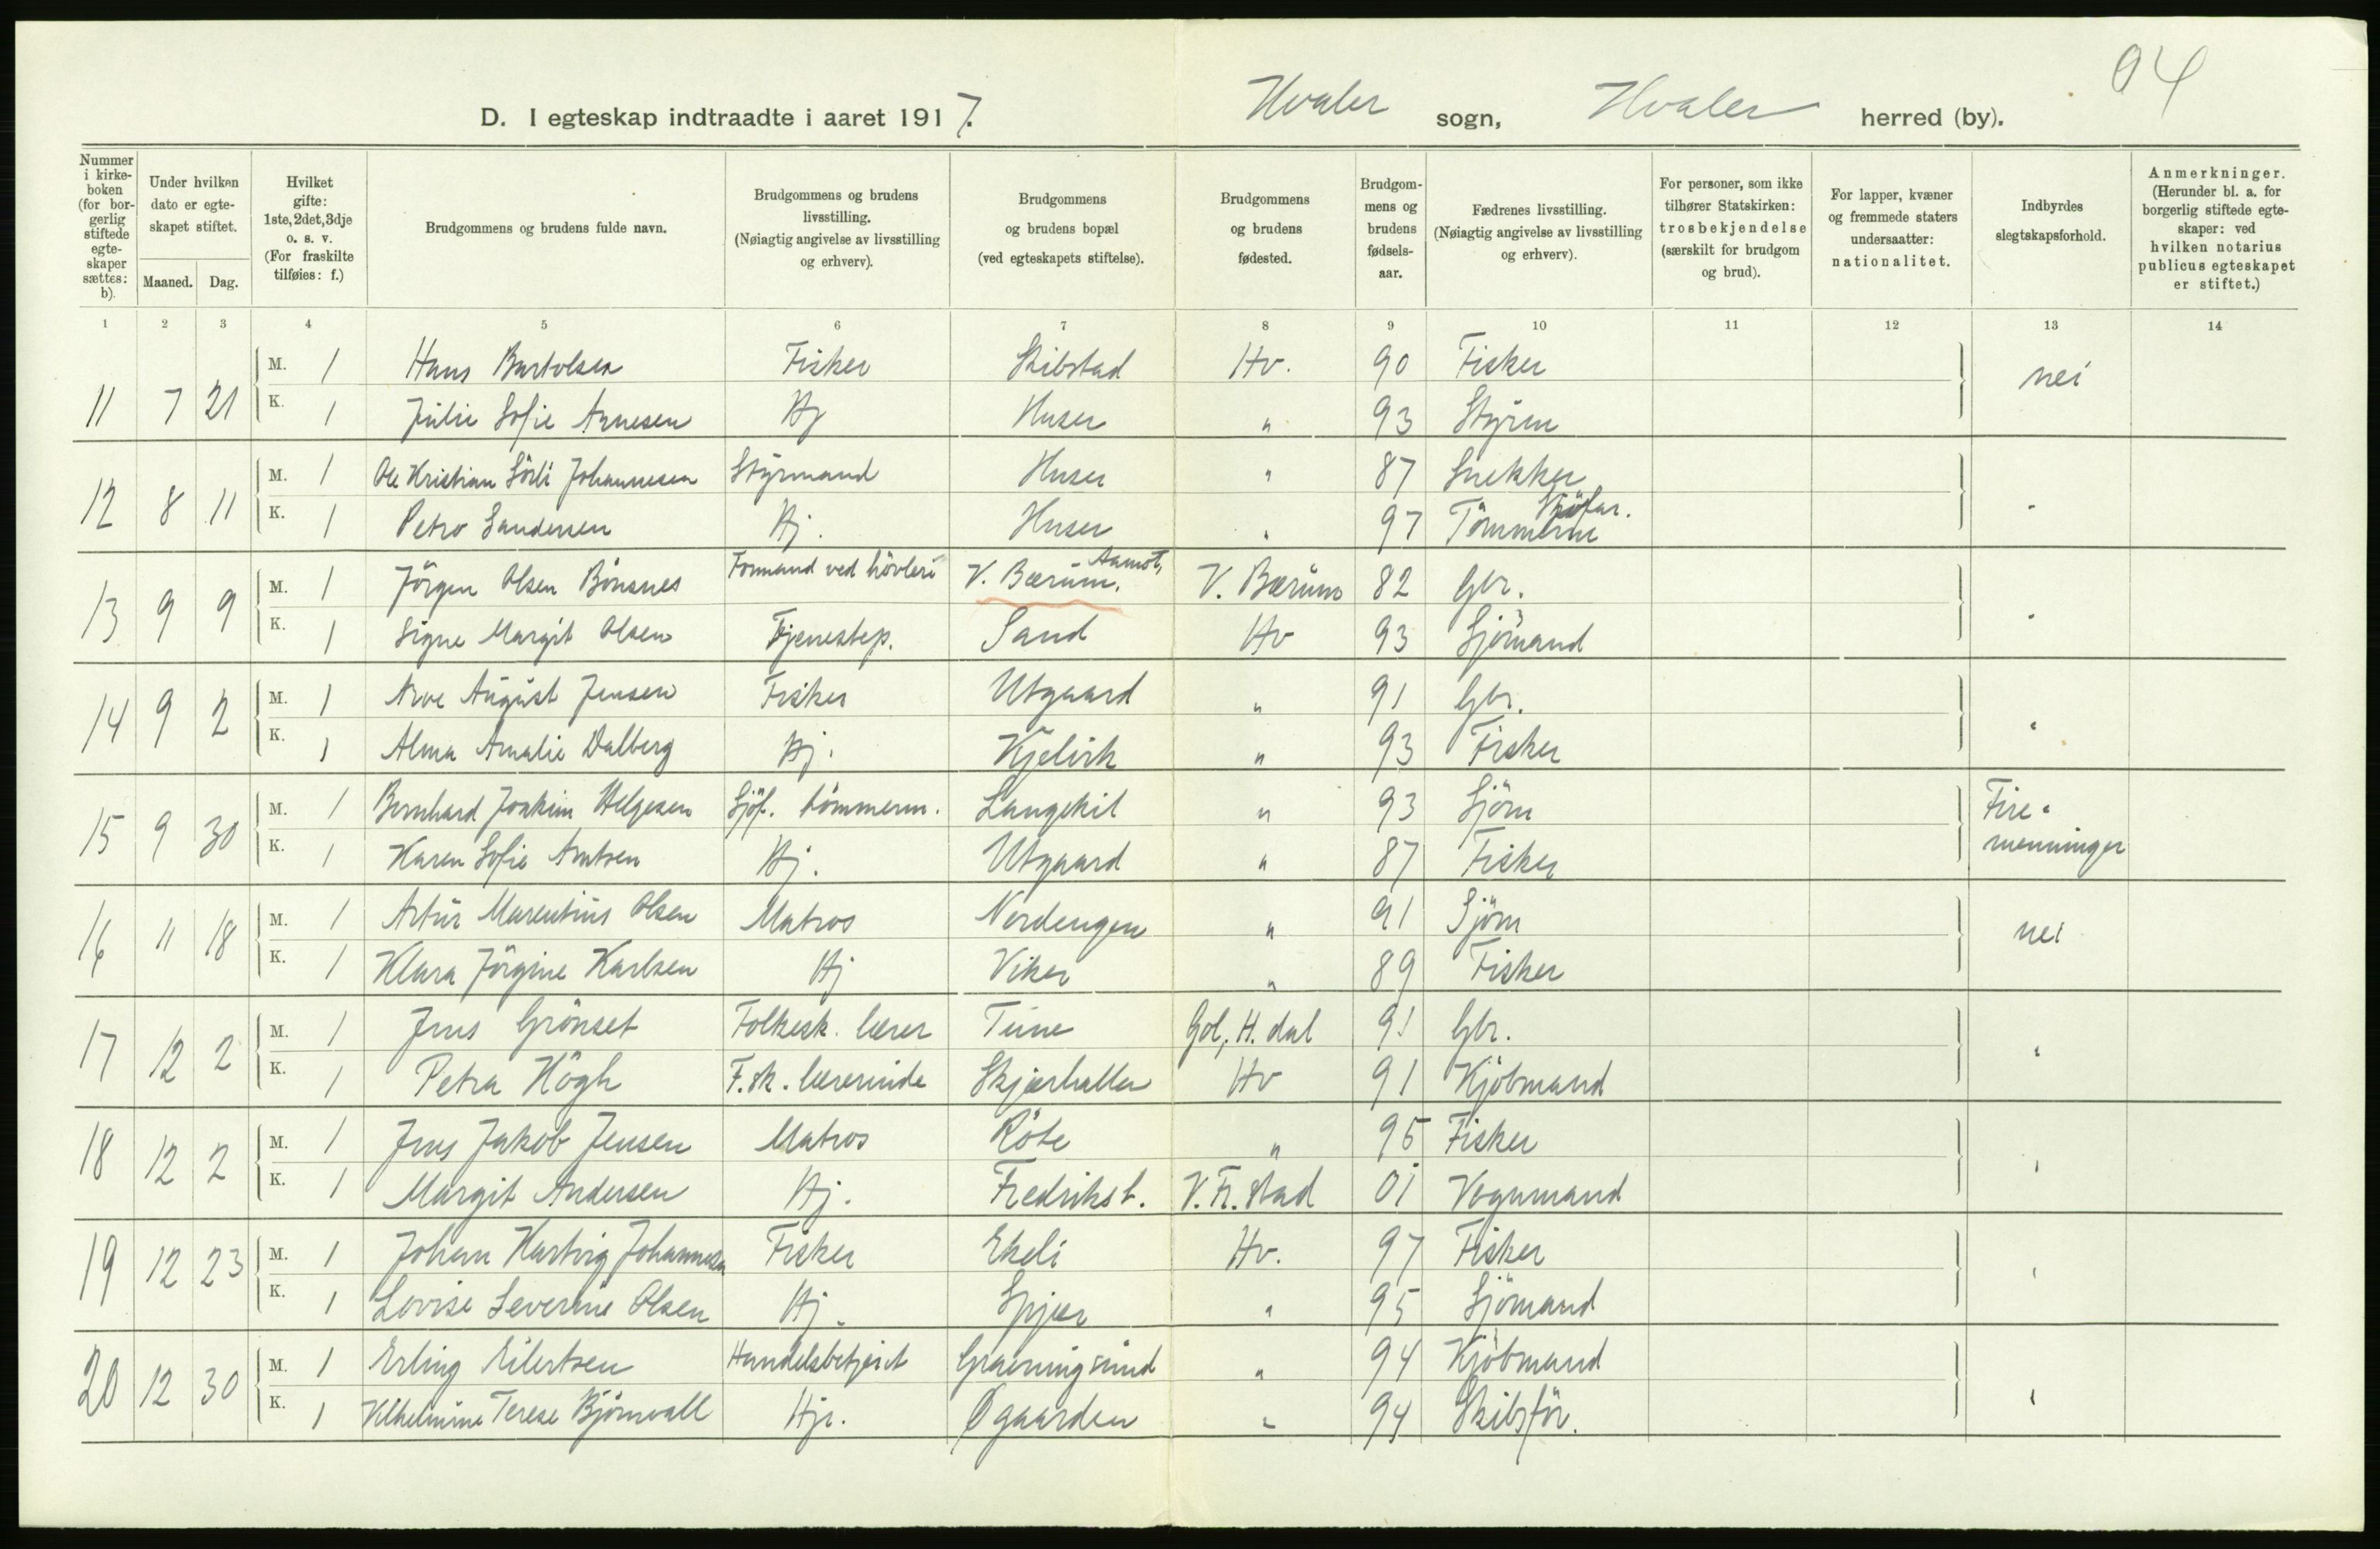 94
D. I egteskap indtraadte i aaret 1917. Hvaler sogn, Hvaler herred (by).
Nummer i kirkeboken (for borgerlig stiftede egteskaper sættes: b).
Under hvilken dato er egteskapet stiftet.
Maaned. Dag.
Hvilket gifte: 1ste, 2det, 3dje o. s. v. (For fraskilte tilføies: f.)
Brudgommens og brudens fulde navn.
Brudgommens og brudens livsstilling. (Nøiagtig angivelse av livsstilling og erhverv).
Brudgommens og brudens bopæl (ved egteskapets stiftelse).
Brudgommens og brudens fødested.
Brudgommens og brudens fødselsaar.
Fædrenes livsstilling. (Nøiagtig angivelse av livsstilling og erhverv).
For personer, som ikke tilhører Statskirken: trosbekjendelse (særskilt for brudgom og brud).
For lapper, kvæner og fremmede staters undersaatter: nationalitet.
Indbyrdes slegtskapsforhold.
Anmerkninger. (Herunder bl. a. for borgerlig stiftede egteskaper: ved hvilken notarius publicus egteskapet er stiftet.)
1 2 3 4 5 6 7 8 9 10 11 12 13 14
11 7 21 M. 1 Hans Bartolsen Fisker Skibstad Hv. 90 Fisker nei
K. 1 Julie Sofie Arnesen Hj Huser " 93 Styrm
12 8 11 M. 1 Ole Kristian Sörli Johannesen Styrmand Huser " 87 Snekker "
K. 1 Petro Sandersen Hj. Huser " 97 Tömmerm Sjöfar.
13 9 9 M. 1 Jörgen Olsen Bönsnes Formand ved hövleri V. Bærum. Aamot, V. Bærum 82 Gbr. "
K. 1 Signe Margit Olsen Tjenestep. Sand Hv 93 Sjömand
14 9 2 M. 1 Arve August Jensen Fisker Utgaard " 91 Gbr. "
K. 1 Alma Amalie Dalberg Hj. Kjelvik " 93 Fisker
15 9 30 M. 1 Bernhard Joakim Helgesen Sjöf. tömmerm. Langekil " 93 Sjöm Fire-
K. 1 Karen Sofie Arntsen Hj. Utgaard " 87 Fisker menninger
16 11 18 M. 1 Artur Marentius Olsen Matros Nordengen " 91 Sjöm nei
K. 1 Klara Jörgine Karlsen Hj Viker " 89 Fisker
17 12 2 M. 1 Jens Grönset Folkesk. lærer Tune Gol, H. dal 91 Gbr. "
K. 1 Petra Högh F. sk. lærerinde Skjærhallen Hv 91 Kjöbmand
18 12 2 M. 1 Jens Jakob Jensen Matros Röte " 95 Fisker "
K. 1 Margit Andersen Hj. Fredrikst. V. Fr. stad 01 Vognmand
19 12 23 M. 1 Johan Hartvig Johannesen Fisker Ekeli Hv. 97 Fisker "
K. 1 Lovise Severine Olsen Hj. Spjær " 95 Sjömand
20 12 30 M. 1 Erling Eilertsen Handelsbetjent Graaningsund " 94 Kjöbmand "
K. 1 Vilhelmine Terese Björnvall Hjr. Øgaarden " 94 Skibsför.